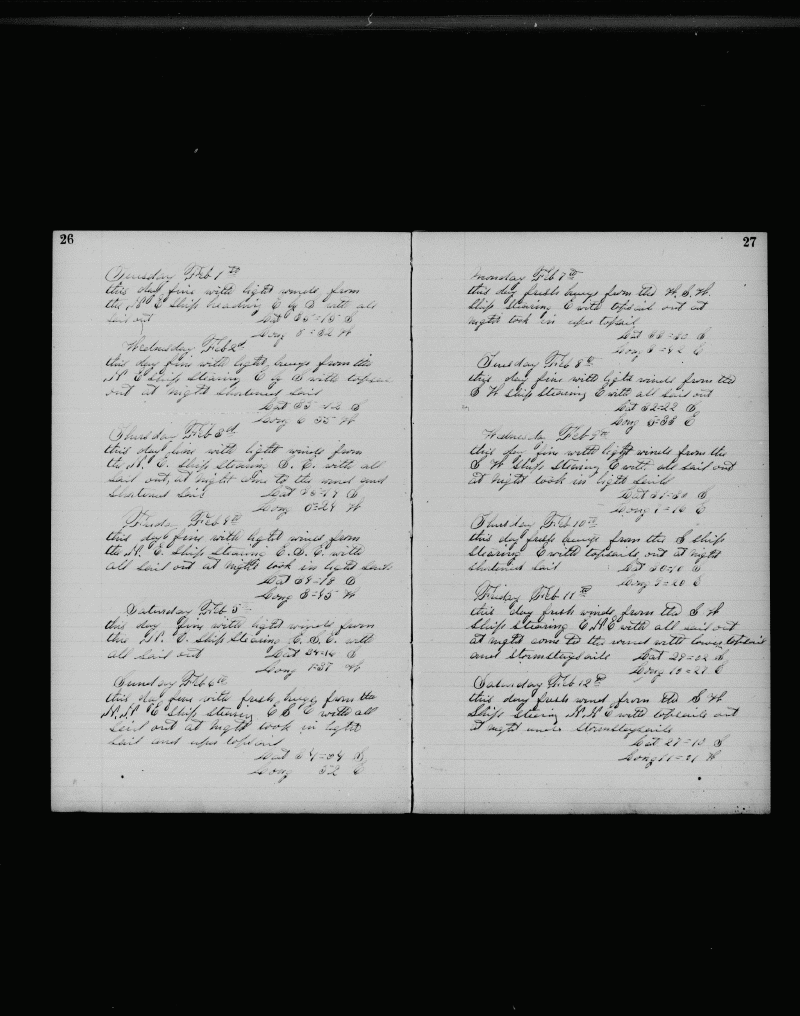 26
Tuesday Feb 1st
this day fine with light winds from
the N E Ship heading E by S with all
sail out Lat 35=15 S
Long 8=32 W
Wednesday Feb 2d
this day fine with light breeze from the
N E Ship Stearing E by S with topsail
out at night shortened sail
Lat 35 S
Long 6 35 W
Thursday Feb 3d
this day fine with light winds from
the N. E. Ship Stearing S. E. with all
sail out, at night to the wind and
Shortened Sail Lat S
Long W
Friday Feb 4th
this day fine with light winds from
the N. E. Ship Stearing E. S. E. with
all Sail out at night took in light Sails
Lat 34=18 S
Long 3=45 W
Saturday Feb 5
this day fine with light winds from
the N. E. Ship Stearing E. S. E. with
all Sail out Lat 34=14 S
Long 1=37 W
Sunday Feb 6th
this day fine with fresh breeze from the
N. N E Ship Stearing E S E with all
Sail out at night took in light
Sail and uper topsail
Lat 34=34 S
Long 52 E
27
Monday Feb 7th
this day fresh breeze from the W. S. W.
Ship Stearing E with topsail out at
night took in uper topsail
Lat S
Long E
Tuesday Feb 8th
this day fine with light winds from the
S W Ship Stearing E with all Sail out
Lat 32=22 S
Long 5=33 E
Wednesday Feb 9th
this day fine with light winds from the
S W Ship Stearing E with all Sail out
at night took in light Sails
Lat 31=30 S
Long 7=16 E
Thursday Feb 10th
this day fresh breeze from the S Ship
Stearing E with topsails out at night
shortened Sail Lat S
Long 9=20 E
Friday Feb 11th
this day fresh winds from the S W
Ship Stearing E N E with all sail out
at night come to the wind with lower topsail
and Stormstaysails Lat 28=02 S
Long 10=21 E
Saturday Feb 12th
this day fresh wind from the S W
Ship Stearing N. N E with topsails out
at night under Stormstaysails
Lat 27=13 S
Long 11=21